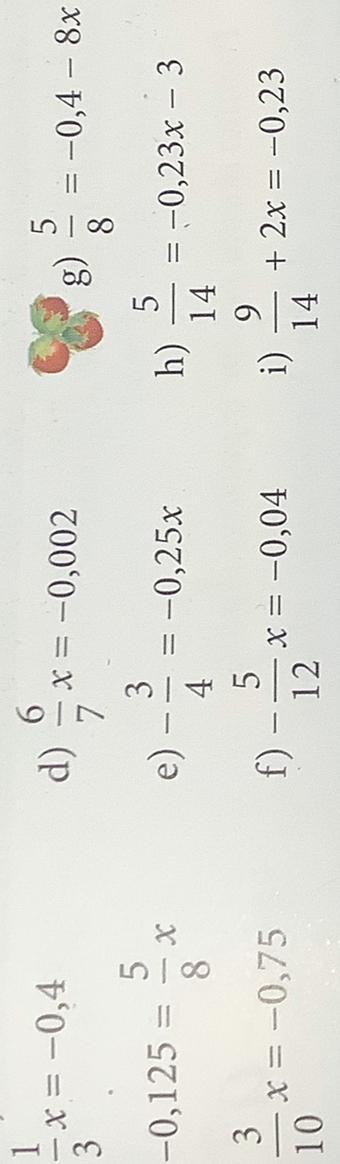 1/3 x = −0,4
d) 6/7 x = −0,002
g) 5/8 = −0,4 − 8x
−0,125 = 5/8 x
e) − 3/4 = −0,25x
h) 5/14 = −0,23x − 3
3/10 x = −0,75
f) − 5/12 x = −0,04
i) 9/14 + 2x = −0,23